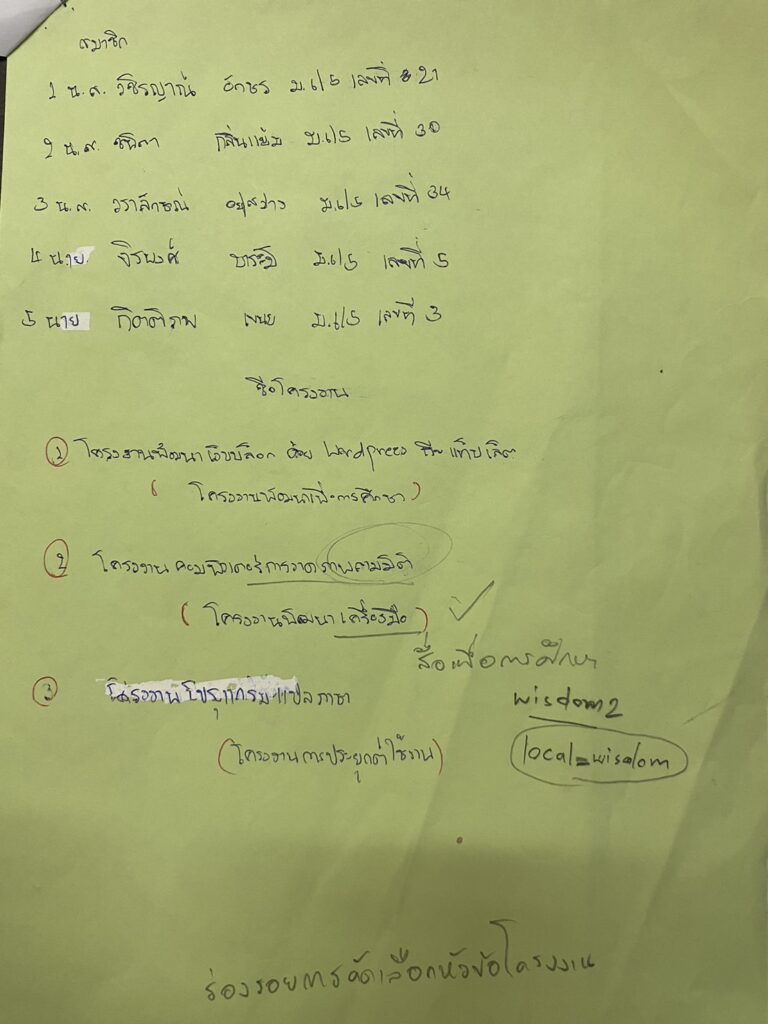 สมาชิก
1 น.ส. วชิรญาณ์ อักษร ม.6/5 เลขที่ 21
2 น.ส. กลิ่นแย้ม ม.6/5 เลขที่ 30
3 น.ส. วราลักษณ์ อยู่สว่าง ม.6/5 เลขที่ 34
4 นาย จิรพงศ์ ม.6/5 เลขที่ 5
5 นาย กิตติภพ ม.6/5 เลขที่ 3
ชื่อโครงงาน
① โครงงานพัฒนาเว็บบล็อก ด้วย Wordpress
(โครงงานพัฒนาเพื่อการศึกษา)
② โครงงาน คอมพิวเตอร์การวาดภาพสามมิติ
(โครงงานพัฒนาเครื่องมือ)
สื่อเพื่อการศึกษา
③ โครงงานโปรแกรมแปลภาษา
wisdom2
(โครงงานการประยุกต์ใช้งาน)
local=wisdom
ร่องรอยการคัดเลือกหัวข้อโครงงาน